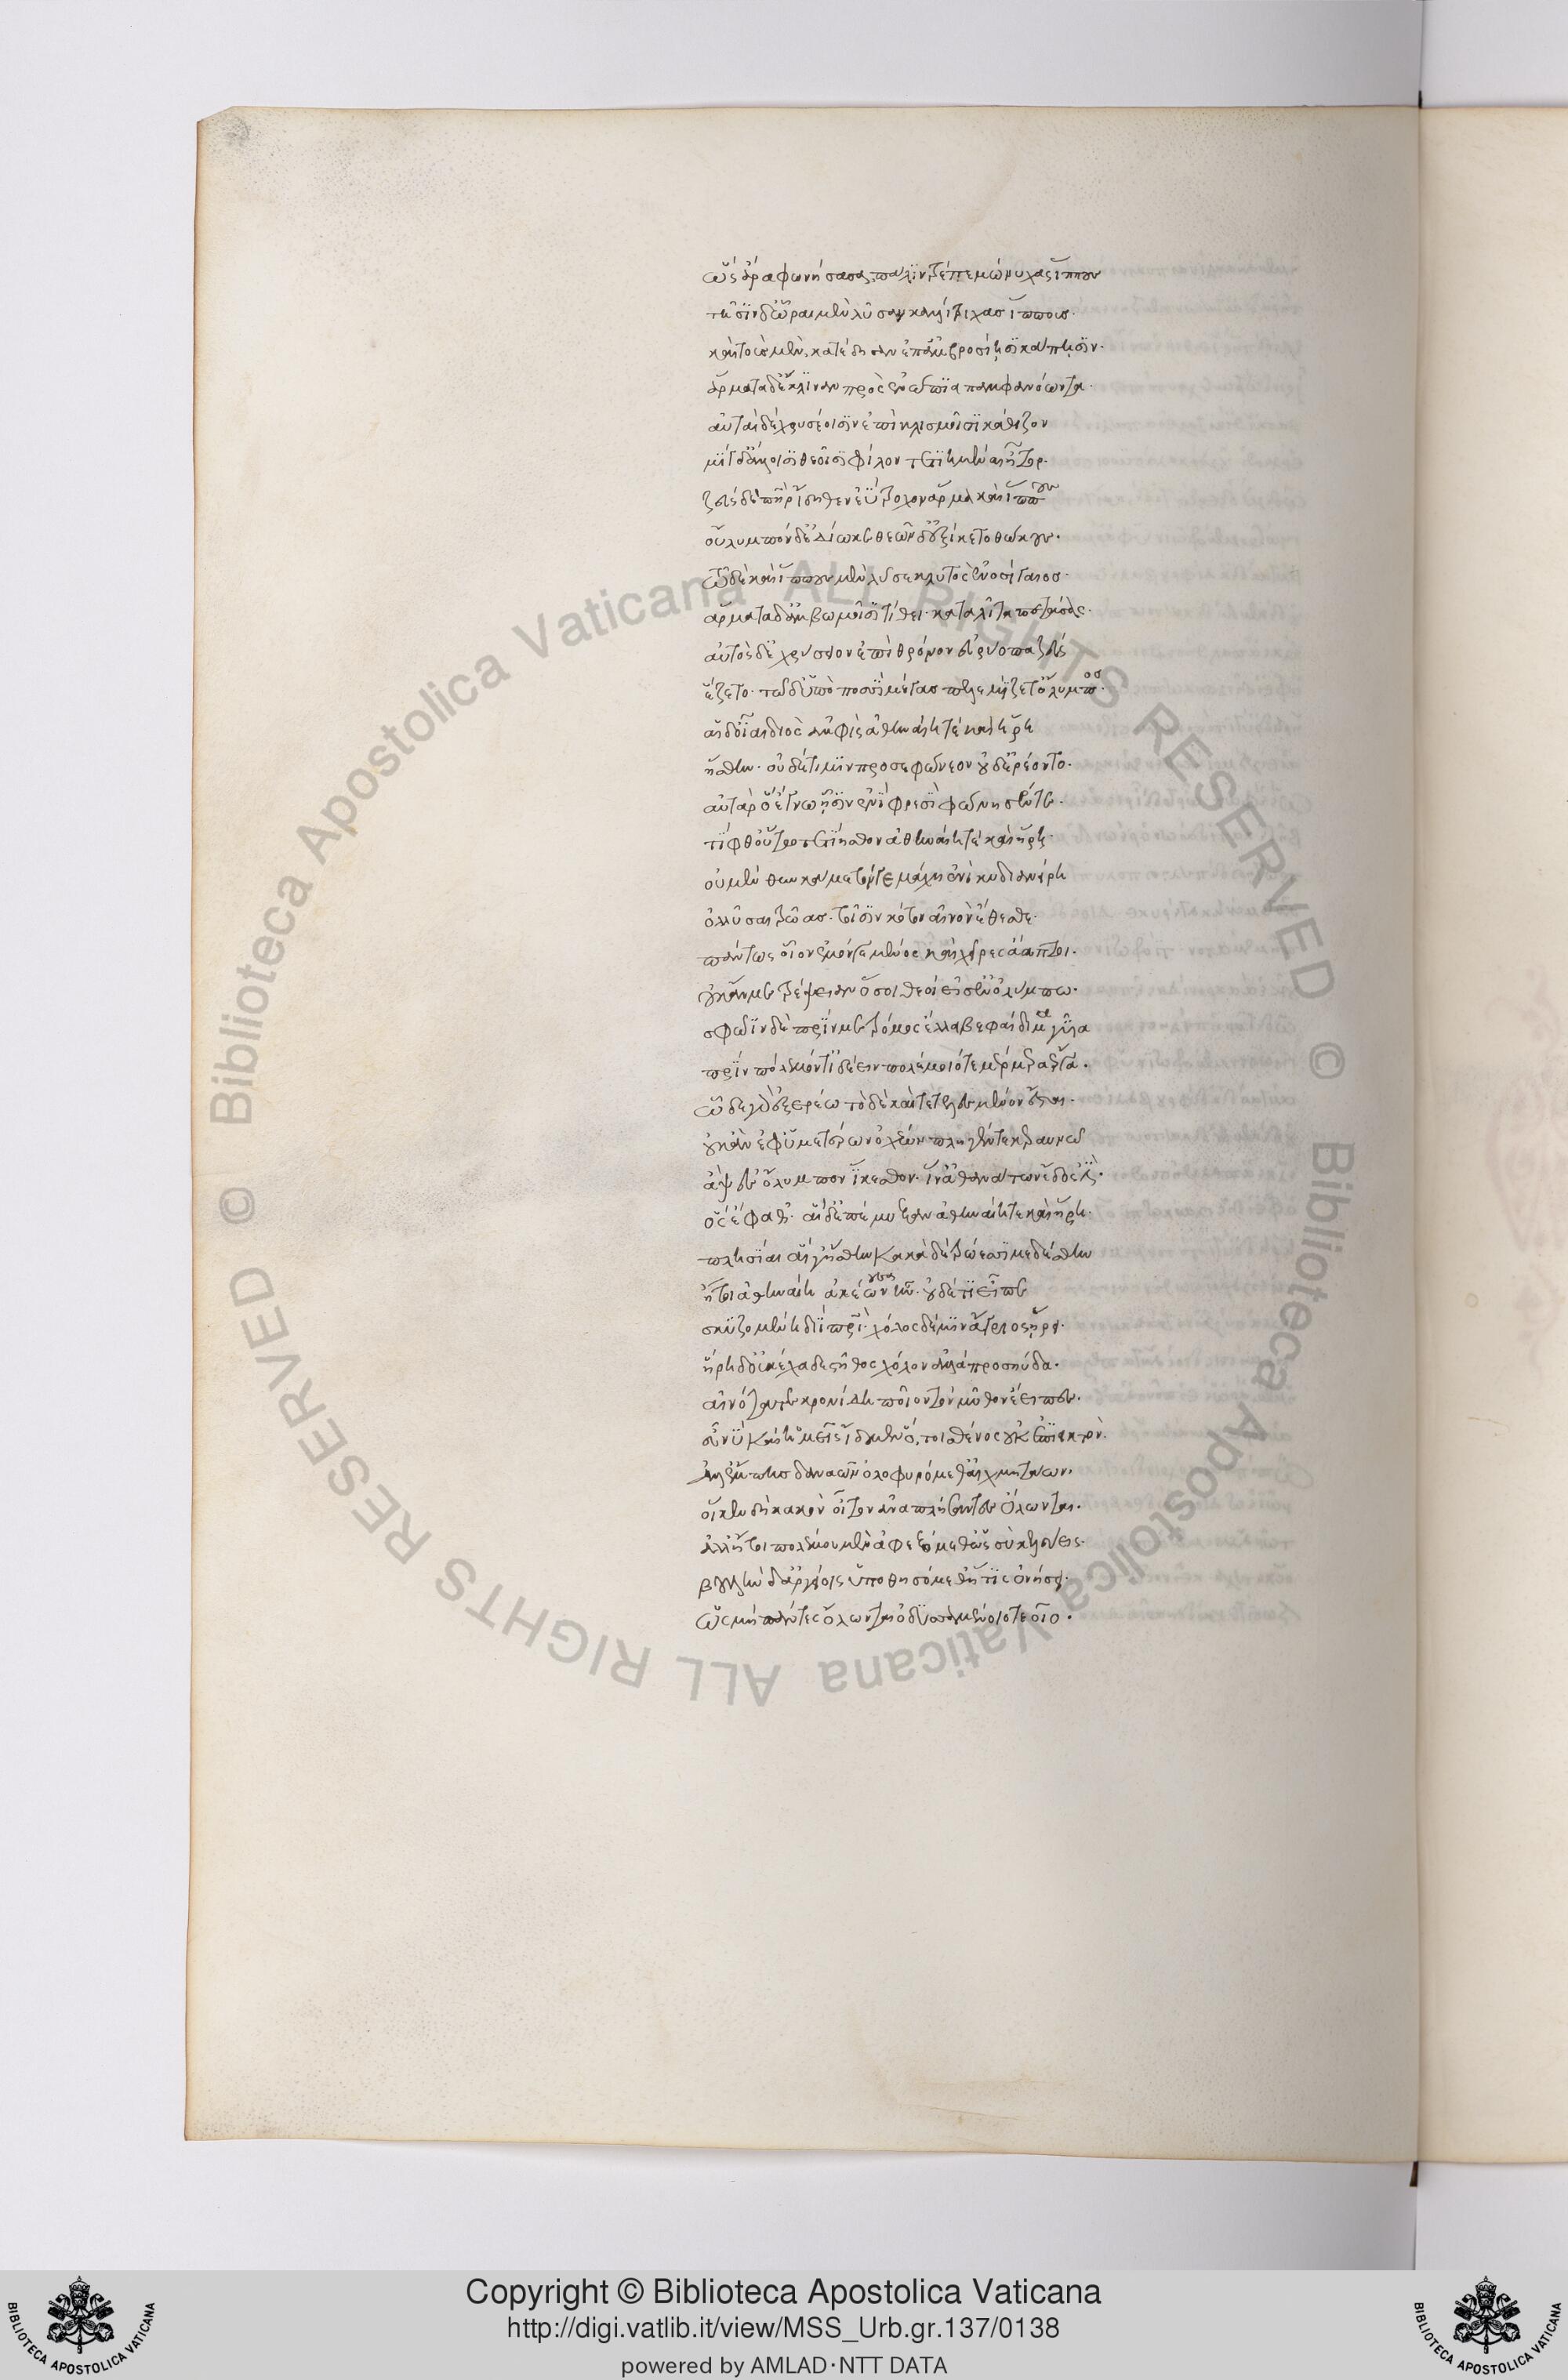 ὣς ἄρα φωνήσασα πάλιν τρέπε μώνυχας ἵππους
τῇσιν δ' ὧραι μὲν λῦσαν καλλίτριχας ἵππους·
καὶ τοὺς μὲν κατέδησαν ἐπ' ἀμβροσίῃσι κάπῃσιν·
ἅρματα δ' ἔκλιναν πρὸς ἐνώπια παμφανόωντα·
αὐταὶ δὲ χρυσέοισιν ἐπὶ κλισμοῖσι κάθιζον
μίγδ' ἄλλοισι θεοῖσι φίλον τετιημέναι ἦτορ·
ζεὺς δὲ πατὴρ ἴδηθεν ἐΰτροχον ἅρμα καὶ ἵππους
οὔλυμπον δὲ δίωκε θεῶν δ' ἐξίκετο θώκους·
τῷ δὲ καὶ ἵππους μὲν λῦσε κλυτὸς ἐνοσίγαιος·
ἅρματα δ' ἂμ βωμοῖσι τίθει· κατὰ λῖτα πετάσσας·
αὐτὸς δὲ χρύσειον ἐπὶ θρόνον εὐρύοπα ζεὺς
ἕζετο· τῷ δ' ὑπὸ ποσσὶ μέγας πελεμίζετ' ὄλυμπος·
αἱ δ' οἶαι διὸς ἀμφὶς ἀθηναίη τὲ καὶ ἥρη
ἥσθην· οὐδέ τι μιν προσεφώνεον οὐδ' ἐρέοντο·
αὐτὰρ ὃ ἔγνω ᾗσιν ἐνὶ φρεσὶ φώνησέν τε·
τίφθ' οὕτω τετίησθον ἀθηναίη τὲ καὶ ἥρη·
οὐ μέν θην κάμετόν γε μάχῃ ἐνὶ κυδιανείρῃ
ὀλλῦσαι τρῶας· τοῖσιν κότον αἰνὸν ἔθεσθε·
πάντως οἷον ἐμόν γε μένος καὶ χεῖρες ἄαπτοι·
οὐκ ἄν με τρέψειαν ὅσοι θεοί εἰσ' ἐν ὀλύμπῳ·
σφῶϊν δὲ πρίν με τρόμος ἔλλαβε φαίδιμα γυῖα
πρὶν πόλεμόν τ' ἰδέειν πολέμοιό τε μέρμερα ἔργα·
ὧδε γὰρ ἐξερέω τὸ δέ κεν τετελεσμένον ἔσται·
οὐκ ἂν ἐφ' ὑμετέρων ὀχέων πληγέντε κεραυνῷ
ἂψ ἐς ὄλυμπον ἵκεσθον· ἵν' ἀθανάτων ἕδος ἐστὶ·
ὣς ἔφαθ'· αἱ δ' ἐπέμυξαν ἀθηναίη τε καὶ ἥρη·
πλησίαι αἵ γ' ἥσθην κακὰ δὲ τρώεσσι μεδέσθην
ἤτοι ἀθηναίη ἀκέων ἦν· οὐδέ τι εἶπε
σκυζομένη διῒ πατρί· χόλος δέ μιν ἄγριος ᾕρει·
ἥρῃ δ' οὐκ ἔχαδε στῆθος χόλον ἀλλὰ προσηύδα·
αἰνότατε κρονίδη ποῖον τὸν μῦθον ἔειπες·
εὖ νὺ καὶ ἡμεῖς ἴδμεν ὅ, τοι σθένος οὐκ ἐπιεικτόν·
ἀλλ' ἔμπης δαναῶν ὀλοφυρόμεθ' αἰχμητάων·
οἵ κεν δὴ κακὸν οἶτον ἀναπλήσαντες ὄλωνται·
ἀλλ' ἤτοι πολέμου μὲν ἀφεξόμεθ' ὡς σὺ κελεύεις·
βουλὴν δ' ἀργείοις ὑποθησόμεθ' ἥ τις ὀνήσει·
ὡς μὴ πάντες ὄλωνται ὀδυσσαμένοιο τεοῖο·
Copyright © Biblioteca Apostolica Vaticana
http://digi.vatlib.it/view/MSS_Urb.gr.137/0138
powered by AMLAD·NTT DATA
© Biblioteca Apostolica Vaticana ALL RIGHTS RESERVED
© Biblioteca Apostolica Vaticana ALL RIGHTS RESERVED
BIBLIOTECA APOSTOLICA VATICANA
BIBLIOTECA APOSTOLICA VATICANA